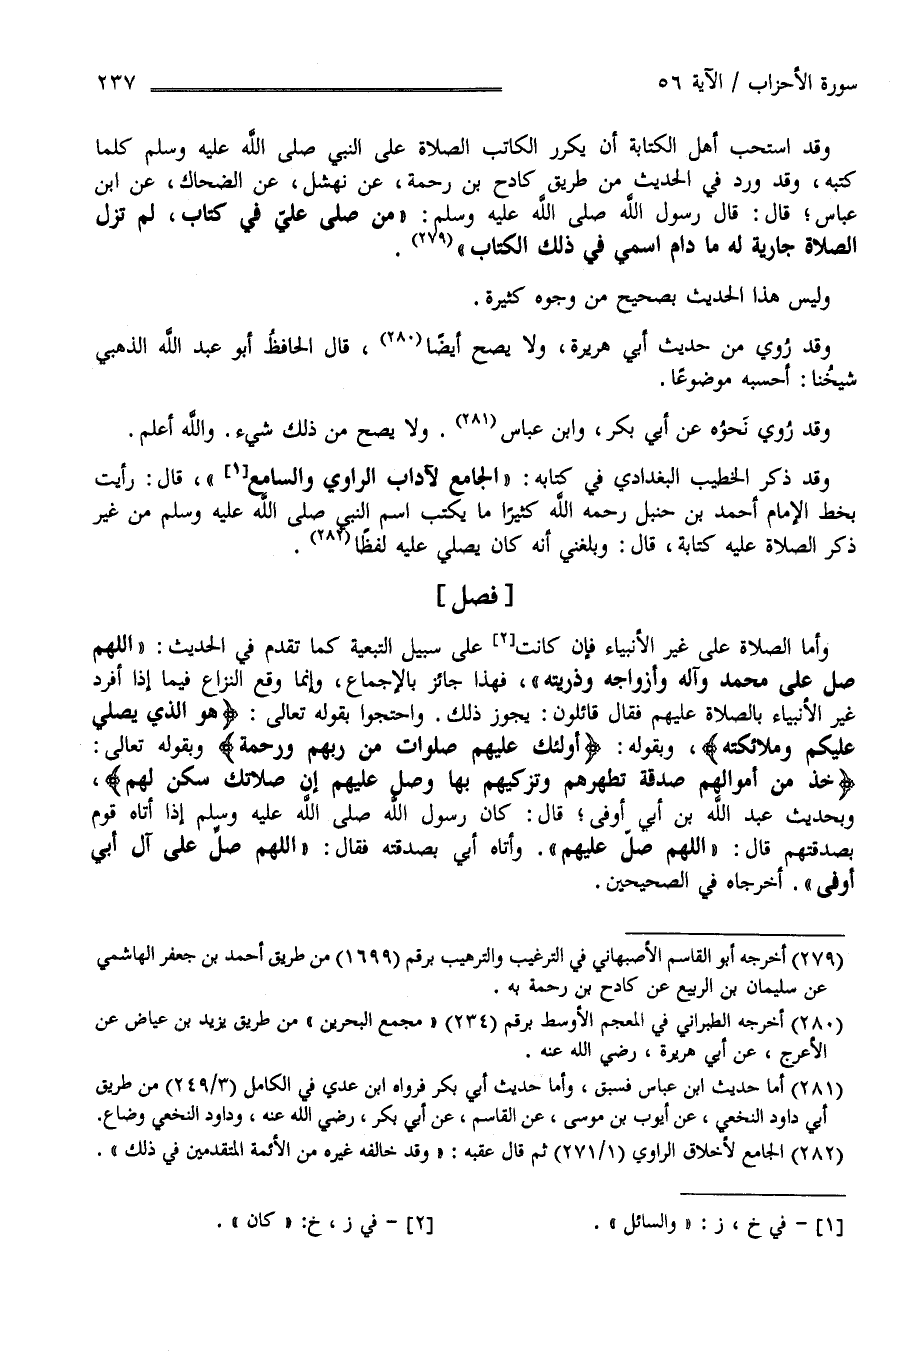 سورة الأحزاب / الآية ٥٦ ٢٣٧
وقد استحب أهل الكتابة أن يكرر الكاتب الصلاة على النبي صلى اللَّه عليه وسلم كلما
كتبه، وقد ورد في الحديث من طريق كادح بن رحمة، عن نهشل، عن الضحاك، عن ابن
عباس؛ قال: قال رسول اللَّه صلى اللَّه عليه وسلم: «من صلى عليّ في كتاب، لم تزل
الصلاة جارية له ما دام اسمي في ذلك الكتاب»(٢٧٩).
وليس هذا الحديث بصحيح من وجوه كثيرة.
وقد رُوي من حديث أبي هريرة، ولا يصح أيضًا(٢٨٠)، قال الحافظُ أبو عبد اللَّه الذهبي
شيخُنا: أحسبه موضوعًا.
وقد رُوي نَحوُه عن أبي بكر، وابن عباس(٢٨١). ولا يصح من ذلك شيء. واللَّه أعلم.
وقد ذكر الخطيب البغدادي في كتابه: «الجامع لآداب الراوي والسامع[١]»، قال: رأيت
بخط الإمام أحمد بن حنبل رحمه اللَّه كثيرًا ما يكتب اسم النبي صلى اللَّه عليه وسلم من غير
ذكر الصلاة عليه كتابة، قال: وبلغني أنه كان يصلي عليه لفظًا(٢٨٢).
[فصل]
وأما الصلاة على غير الأنبياء فإن كانت[٢] على سبيل التبعية كما تقدم في الحديث: «اللهم
صل على محمد وآله وأزواجه وذريته»، فهذا جائز بالإجماع، وإنما وقع النزاع فيما إذا أفرد
غير الأنبياء بالصلاة عليهم فقال قائلون: يجوز ذلك. واحتجوا بقوله تعالى: ﴿هو الذي يصلي
عليكم وملائكته﴾، وبقوله: ﴿أولئك عليهم صلوات من ربهم ورحمة﴾ وبقوله تعالى:
﴿خذ من أموالهم صدقة تطهرهم وتزكيهم بها وصل عليهم إن صلاتك سكن لهم﴾،
وبحديث عبد اللَّه بن أبي أوفى؛ قال: كان رسول اللَّه صلى اللَّه عليه وسلم إذا أتاه قوم
بصدقتهم قال: «اللهم صلّ عليهم». وأتاه أبي بصدقته فقال: «اللهم صلِّ على آل أبي
أوفى». أخرجاه في الصحيحين.
(٢٧٩) أخرجه أبو القاسم الأصبهاني في الترغيب والترهيب برقم (١٦٩٩) من طريق أحمد بن جعفر الهاشمي
عن سليمان بن الربيع عن كادح بن رحمة به.
(٢٨٠) أخرجه الطبراني في المعجم الأوسط برقم (٢٣٤) «مجمع البحرين» من طريق يزيد بن عياض عن
الأعرج، عن أبي هريرة، رضي الله عنه.
(٢٨١) أما حديث ابن عباس فسبق، وأما حديث أبي بكر فرواه ابن عدي في الكامل (٢٤٩/٣) من طريق
أبي داود النخعي، عن أيوب بن موسى، عن القاسم، عن أبي بكر، رضي الله عنه، وداود النخعي وضاع.
(٢٨٢) الجامع لأخلاق الراوي (٢٧١/١) ثم قال عقبه: «وقد خالفه غيره من الأئمة المتقدمين في ذلك».
[١] - في خ، ز: «والسائل». [٢] - في ز، خ: «كان».